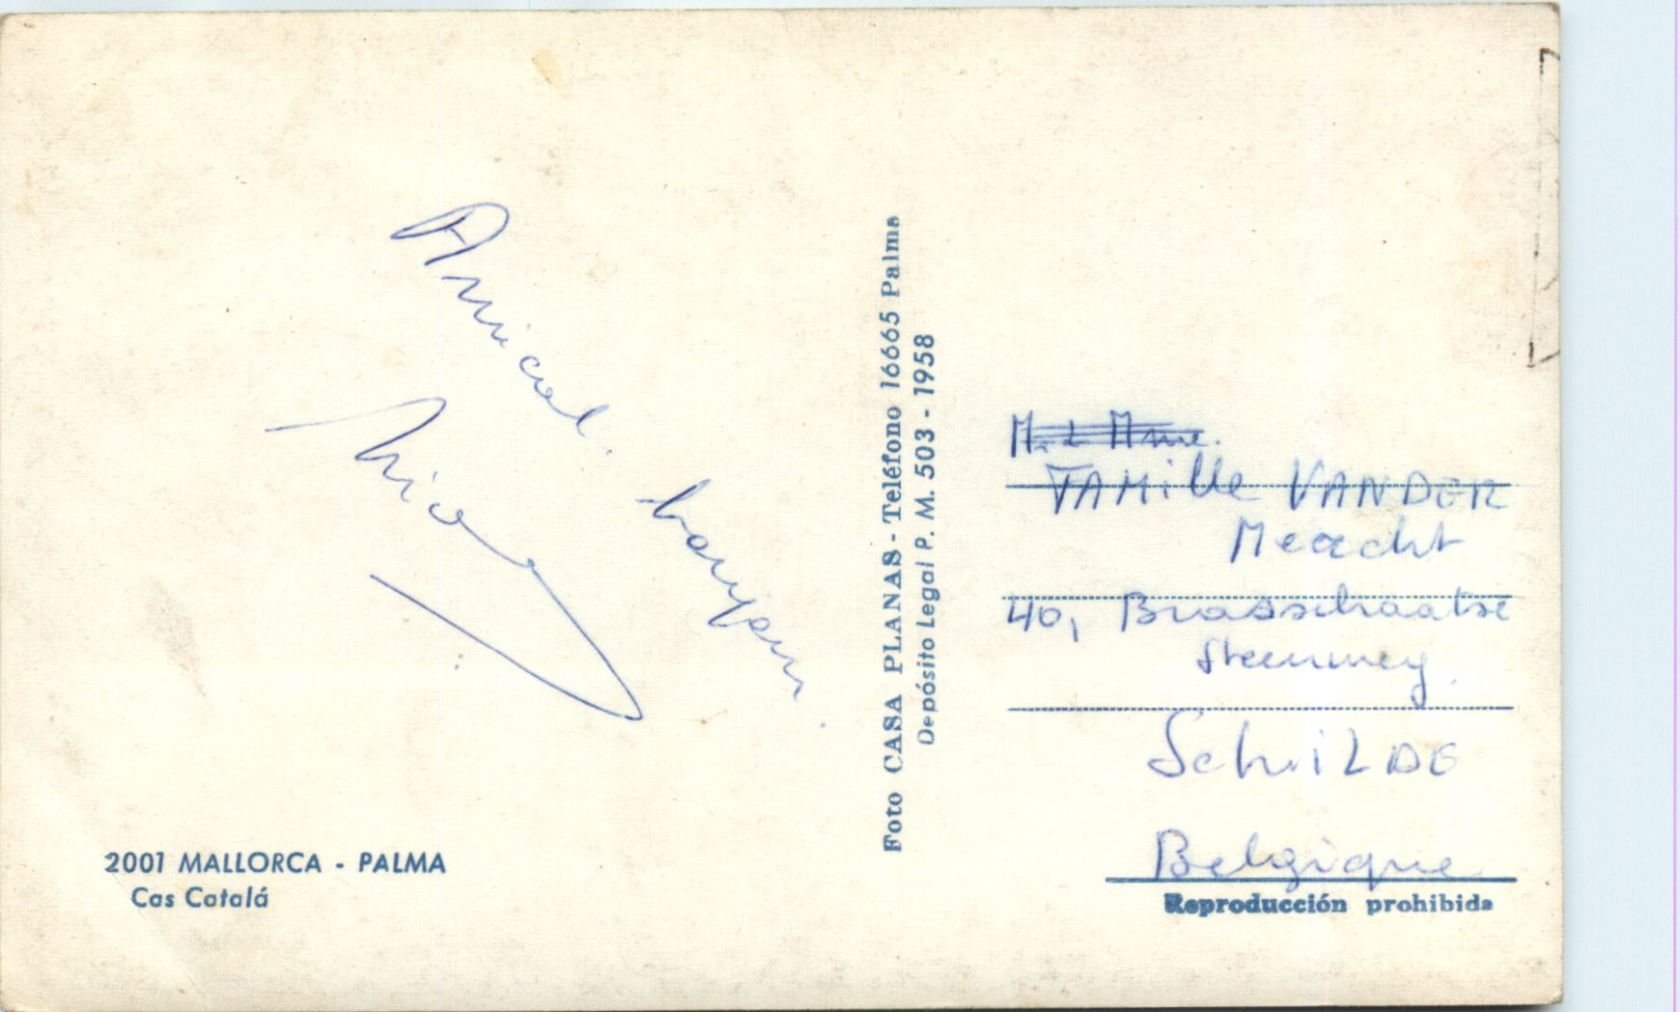 Amical.
2001 MALLORCA - PALMA
Cas Catalá
Foto CASA PLANAS - Teléfono 16665 Palma
Depósito Legal P. M. 503 - 1958
M. & Mme.
FAMille VANDER
40, Brasschaatse
Steenweg.
SchiLDE
Belgique
Reproducción prohibida